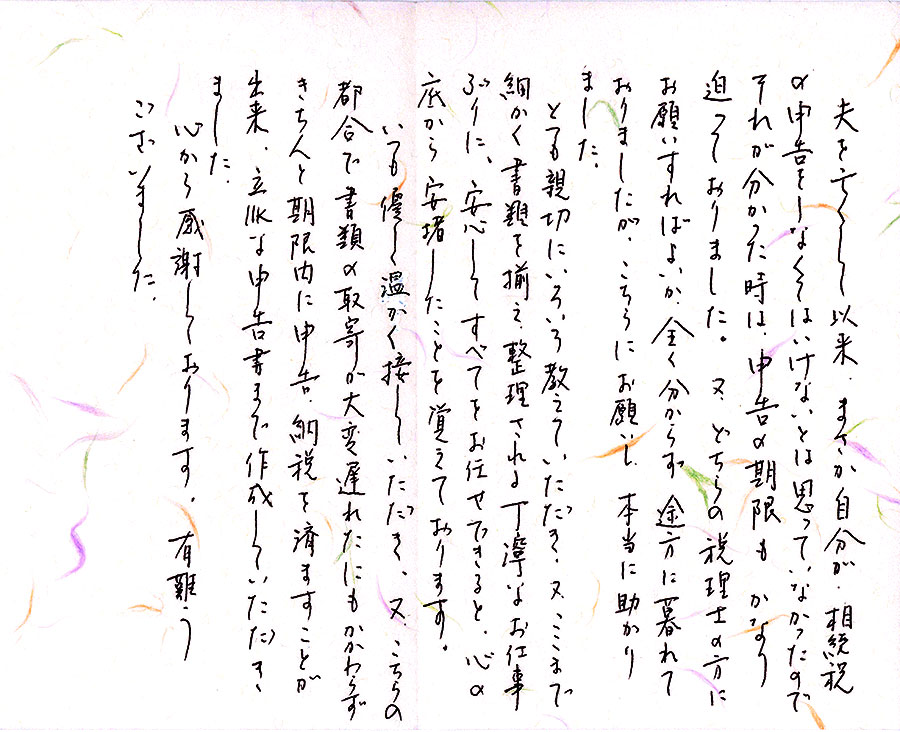 夫を亡くして以来、まさか自分が、相続税
の申告をしなくてはいけないとは思っていなかったので
それが分かった時は、申告の期限もかなり
迫っておりました。又、どちらの税理士の方に
お願いすればよいか、全く分からず、途方に暮れて
おりましたが、こちらにお願いし、本当に助かり
ました。
とても親切にいろいろ教えていただき、又、ここまで
細かく書類を揃え、整理される丁寧なお仕事
ぶりに、安心してすべてをお任せできると、心の
底から安堵したことを覚えております。
いつも優しく温かく接していただき、又、こちらの
都合で書類の取寄が大変遅れたにもかかわらず
きちんと期限内に申告、納税を済ますことが
出来、立派な申告書まで作成していただき
ました。
心から感謝しております。有難う
ございました。